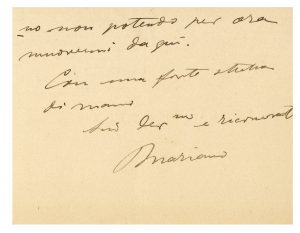 no non potendo per ora
muovermi da quì.
Con una forte stretta
di mano
Suo dev mo e riconosct
Bmariano